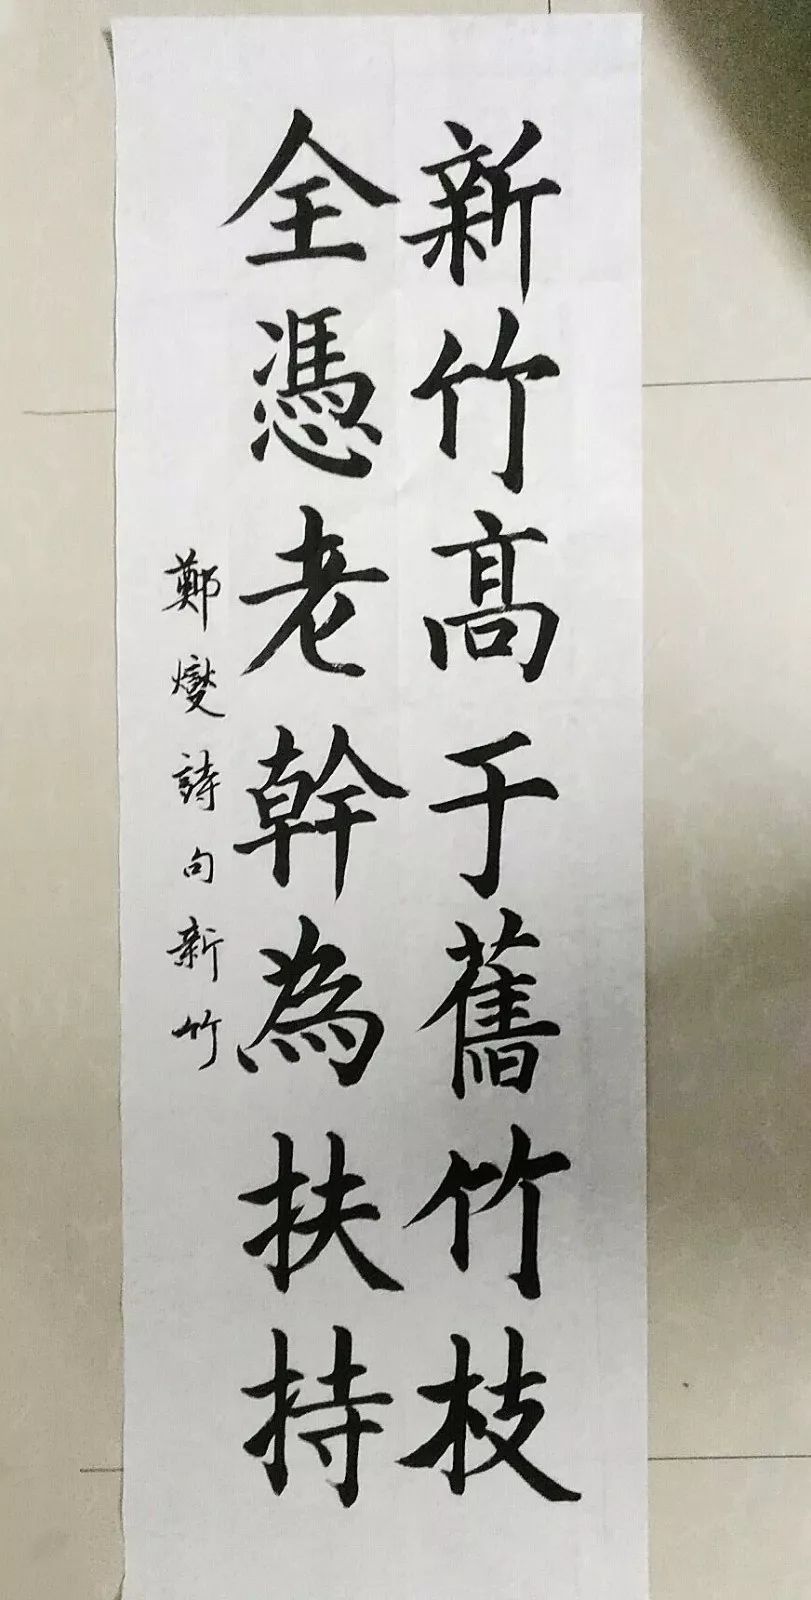 新竹高于舊竹枝
全憑老幹為扶持
鄭燮詩句新竹